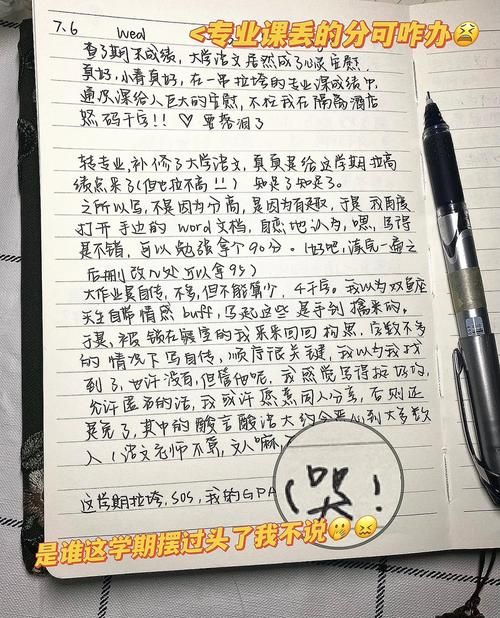 <专业课丢的分可咋办😫
7.6 Wed
查了期末成绩,大学语文居然成了心灵安慰
真好,小青真好,在一串拉垮的专业课成绩中
通识课给人巨大的安慰,不枉我在隔离酒店
怒码千字!!♡要落泪了
转专业,补修了大学语文,真真是给这学期拉高
绩点来了(但也拉不高!!)知足了知足了。
之所以写,不是因为分高,是因为有趣,于是我再度
打开手边的word文档,自恋地认为,嗯,写得
是不错,可以勉强拿个90分。(好吧,读完一遍之
后删改几处可以拿95)
大作业是自传,不多,但不能算少,4千字。我以为双鱼座
天生自带情感buff,写起这些是手到擒来的。
于是,被锁在寝室的我来来回回构思,字数不多
的情况下写自传,顺序很关键,我以为我找
到了,也许没有,但管他呢,我感觉写得挺好的,
允许匿名的话,我或许愿意同人分享,否则还
是完了,其中的酸言酸语大约会恶心到大多数
人(语文老师不算,文人嘛,
这学期拉垮,SOS,我的GPA
(哭!
是谁这学期摆过头了我不说🤫😖